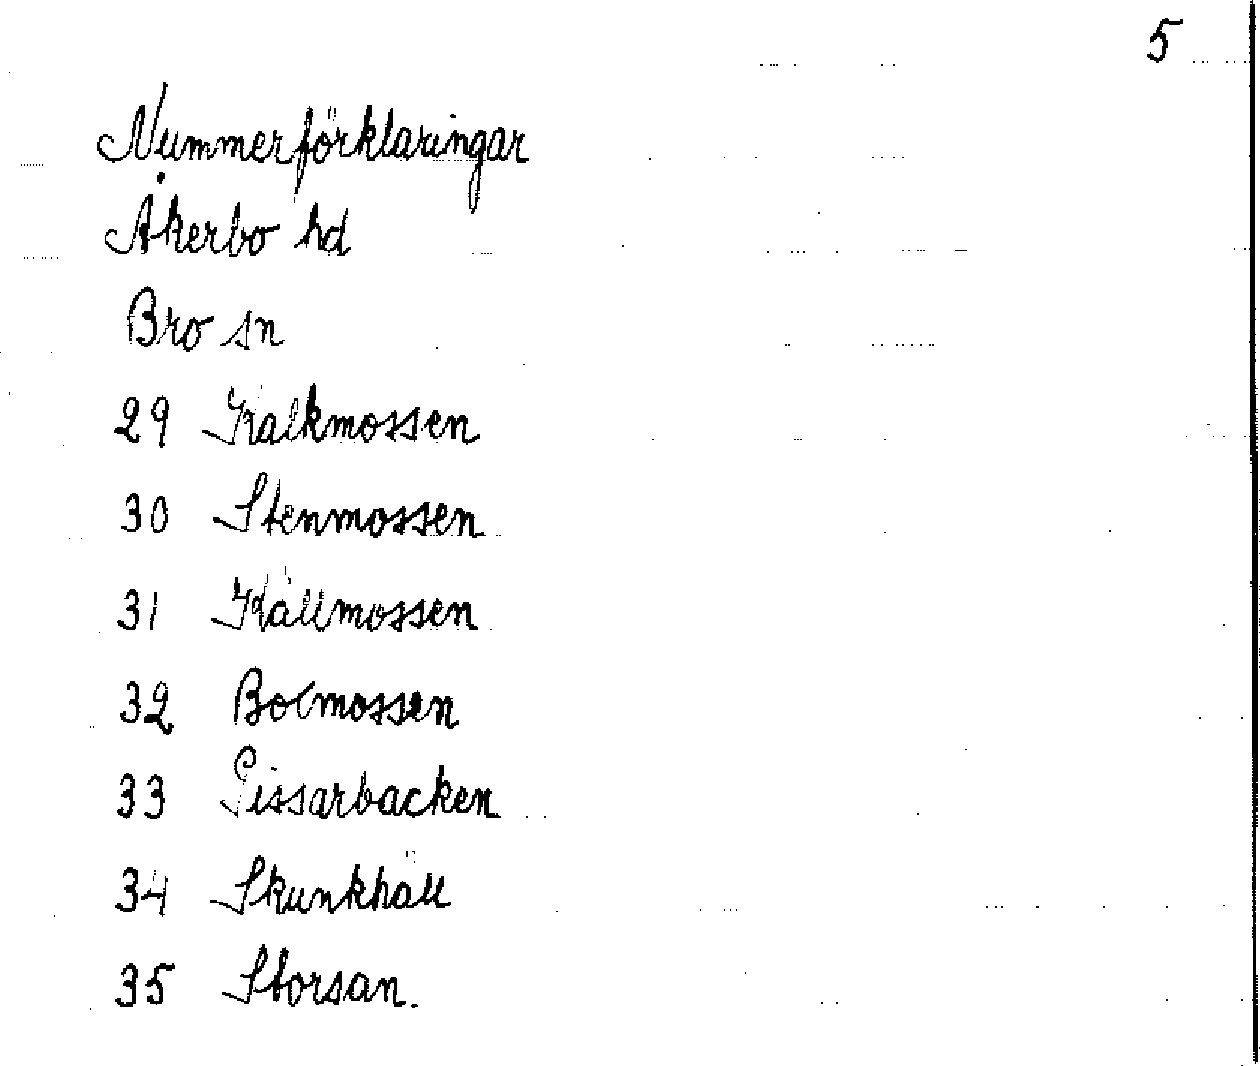 5
Nummerförklaringar
Åkerbo hd
Bro sn
29 Kalkmossen
30 Stenmossen
31 Källmossen
32 Bolmossen
33 Pissarbacken
34 Skunkhäll
35 Storsan.